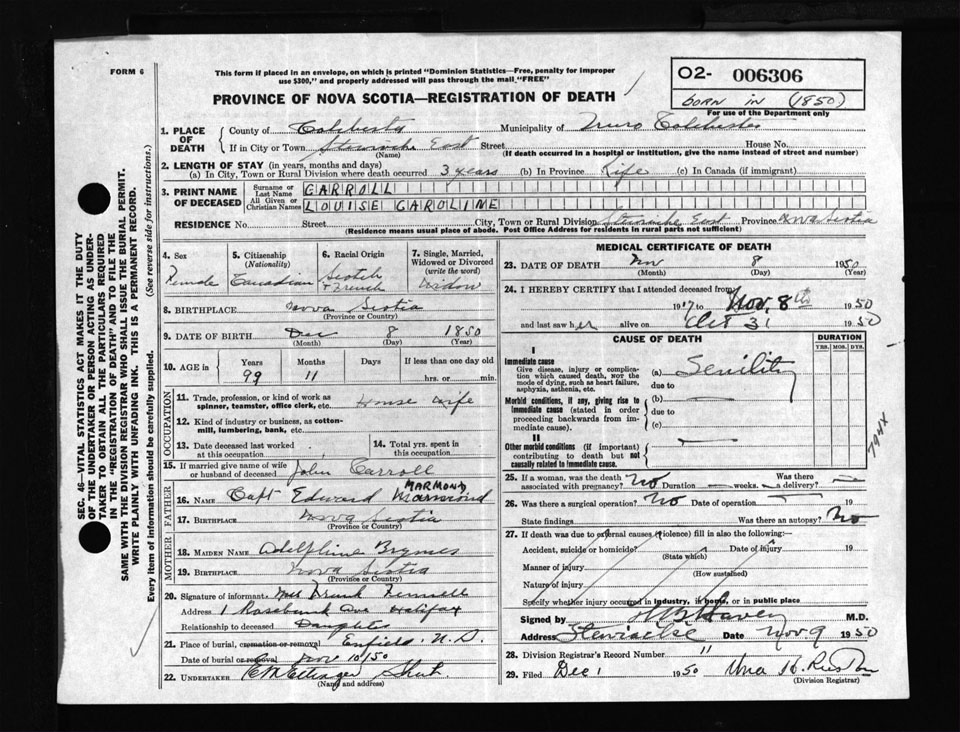 FORM 6
This form if placed in an envelope, on which is printed "Dominion Statistics—Free, penalty for improper
use $300," and properly addressed will pass through the mail "FREE"
PROVINCE OF NOVA SCOTIA—REGISTRATION OF DEATH
O2- 006306
born in (1850)
For use of the Department only
1. PLACE OF DEATH
County of Colchester Municipality of Truro Colchester
If in City or Town Stewiacke East Street House No.
(Name) (If death occurred in a hospital or institution, give the name instead of street and number)
2. LENGTH OF STAY (in years, months and days)
(a) In City, Town or Rural Division where death occurred 3 years (b) In Province Life (c) In Canada (if immigrant)
3. PRINT NAME OF DECEASED
Surname or Last Name CARROLL
All Given or Christian Names LOUISE CAROLINE
RESIDENCE No. Street City, Town or Rural Division Stewiacke East Province Nova Scotia
(Residence means usual place of abode. Post Office Address for residents in rural parts not sufficient)
4. Sex Female
5. Citizenship (Nationality) Canadian
6. Racial Origin Scotch + French
7. Single, Married, Widowed or Divorced (write the word) Widow
8. BIRTHPLACE Nova Scotia
(Province or Country)
9. DATE OF BIRTH Dec 8 1850
(Month) (Day) (Year)
10. AGE in Years 99 Months 11 Days If less than one day old hrs. or min.
OCCUPATION
11. Trade, profession, or kind of work as spinner, teamster, office clerk, etc. House wife
12. Kind of industry or business, as cotton-mill, lumbering, bank, etc.
13. Date deceased last worked at this occupation
14. Total yrs. spent in this occupation
15. If married give name of wife or husband of deceased John Carroll
FATHER
MARMOND
16. NAME Capt Edward Marmond
17. BIRTHPLACE Nova Scotia
(Province or Country)
MOTHER
18. MAIDEN NAME Adelphine Brymes
19. BIRTHPLACE Nova Scotia
(Province or Country)
20. Signature of informant Mrs Frank
Address 1 Rosebank Ave Halifax
Relationship to deceased Daughter
21. Place of burial, cremation or removal Enfield, N.S.
Date of burial or removal Nov 10/50
22. UNDERTAKER E M Ettinger Shub.
(Name and address)
MEDICAL CERTIFICATE OF DEATH
23. DATE OF DEATH Nov 8 1950
(Month) (Day) (Year)
24. I HEREBY CERTIFY that I attended deceased from
1917 to Nov. 8th 1950
and last saw her alive on Oct 31 1950
CAUSE OF DEATH
DURATION
YRS. MOS. DYS.
I
Immediate cause
Give disease, injury or complication which caused death, not the mode of dying, such as heart failure, asphyxia, asthenia, etc.
(a) Senility
due to
Morbid conditions, if any, giving rise to immediate cause (stated in order proceeding backwards from immediate cause).
(b)
due to
(c)
II
Other morbid conditions (if important) contributing to death but not causally related to immediate cause.
794X
25. If a woman, was the death associated with pregnancy? No Duration weeks. Was there a delivery?
26. Was there a surgical operation? No Date of operation 19
State findings Was there an autopsy? No
27. If death was due to external causes (violence) fill in also the following:—
Accident, suicide or homicide? Date of injury 19
(State which)
Manner of injury
(How sustained)
Nature of injury
Specify whether injury occurred in industry, in home, or in public place
Signed by M.D.
Address Stewiacke Date Nov 9 1950
28. Division Registrar's Record Number 11
29. Filed Dec 1 1950 Una H.
(Division Registrar)
SEC. 46—VITAL STATISTICS ACT MAKES IT THE DUTY
OF THE UNDERTAKER OR PERSON ACTING AS UNDER-
TAKER TO OBTAIN ALL THE PARTICULARS REQUIRED
IN THE "REGISTRATION OF DEATH" AND TO FILE THE
SAME WITH THE DIVISION REGISTRAR WHO SHALL ISSUE THE BURIAL PERMIT.
WRITE PLAINLY WITH UNFADING INK. THIS IS A PERMANENT RECORD.
Every item of information should be carefully supplied. (See reverse side for instructions.)